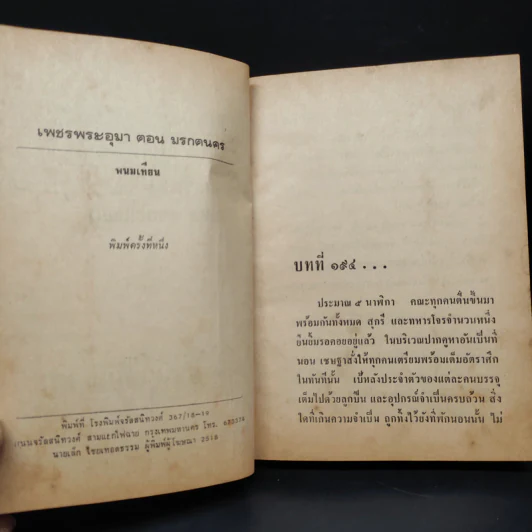 เพชรพระอุมา ตอน มรกตนคร
พนมเทียน
พิมพ์ครั้งที่หนึ่ง
พิมพ์ที่ โรงพิมพ์จรัลสนิทวงศ์ 367/18-19
ถนนจรัลสนิทวงศ์ สามแยกไฟฉาย กรุงเทพมหานคร โทร.
นายเล็ก ไชยเทอดธรรม ผู้พิมพ์ผู้โฆษณา 2518
บทที่ ๑๙๔ ...
ประมาณ ๕ นาฬิกา คณะทุกคนตื่นขึ้นมา
พร้อมกันทั้งหมด สุกรี และทหารโจรจำนวนหนึ่ง
ยืนยิ้มรอคอยอยู่แล้ว ในบริเวณปากคูหาอันเป็นที่
นอน เชษฐาสั่งให้ทุกคนเตรียมพร้อมเต็มอัตราศึก
ในทันทีนั้น เป้หลังประจำตัวของแต่ละคนบรรจุ
เต็มไปด้วยลูกปืน และอุปกรณ์จำเป็นครบถ้วน สิ่ง
ใดที่เกินความจำเป็น ถูกทิ้งไว้ยังที่พักนอนนั้น ไม่